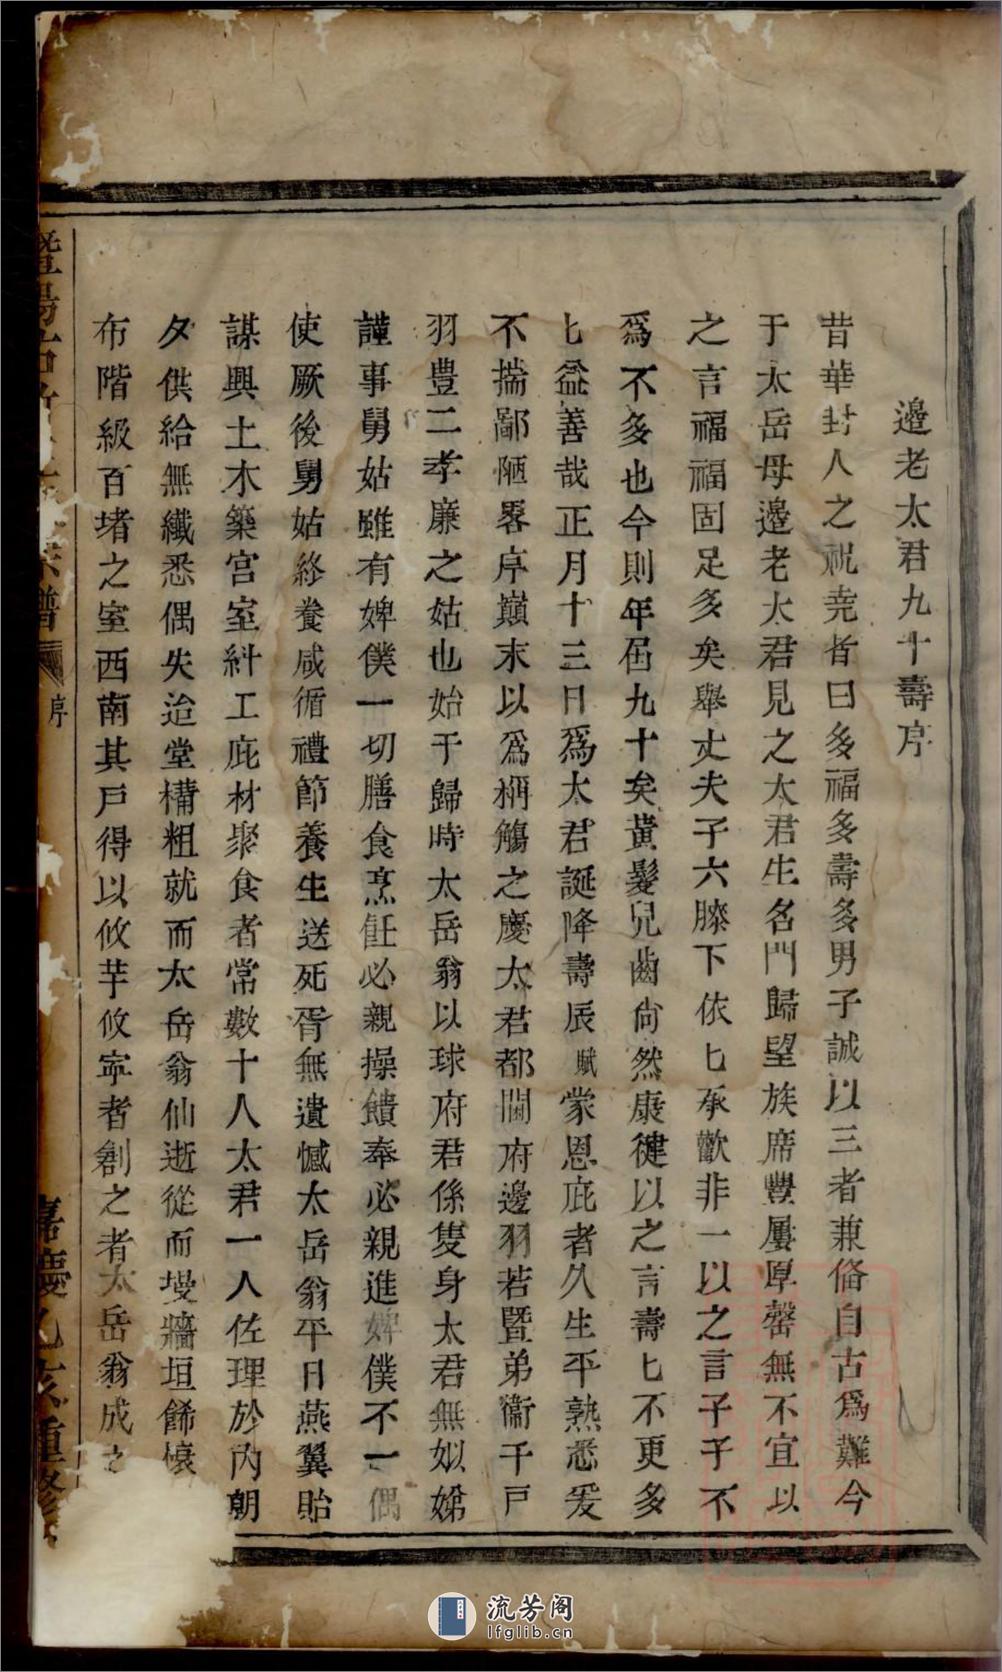 邉老太君九十壽序
昔華封人之祝堯者曰多福多壽多男子誠以三者兼俻自古爲難今
于太岳母邉老太君見之太君生名門歸望族席豐履厚罄無不宜以
之言福福固足多矣舉丈夫子六膝下依匕承歡非一以之言子子不
爲不多也今則年屆九十矣黃髮兒齒尙然康健以之言壽匕不更多
匕益善哉正月十三日爲太君誕降壽辰賦蒙恩庇者久生平熟悉爰
不揣鄙陋畧序巔末以爲稱觴之慶太君都閫府邉羽若暨弟衞千戶
羽豊二孝廉之姑也始于歸時太岳翁以球府君係隻身太君無姒娣
謹事舅姑雖有婢僕一切膳食烹飪必親操饋奉必親進婢僕不一偶
使厥後舅姑終養咸循禮節養生送死胥無遺憾太岳翁平日燕翼貽
謀興土木築宫室糾工庇材聚食者常數十人太君一人佐理於內朝
夕供給無纎悉偶失迨堂構粗就而太岳翁仙逝從而墁牆垣餙壊
布階級百堵之室西南其戸得以攸芋攸寧者創之者太岳翁成之
暨陽
宗譜
序
嘉慶乙亥重修
流芳阁
lfglib.cn